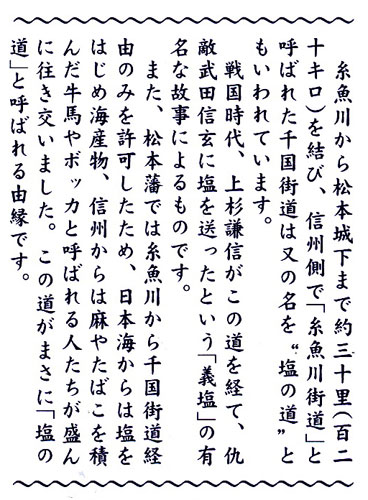 糸魚川から松本城下まで約三十里（百二
十キロ）を結び、信州側で「糸魚川街道」と
呼ばれた千国街道は又の名を〝塩の道〟と
もいわれています。
戦国時代、上杉謙信がこの道を経て、仇
敵武田信玄に塩を送ったという「義塩」の有
名な故事によるものです。
また、松本藩では糸魚川から千国街道経
由のみを許可したため、日本海からは塩を
はじめ海産物、信州からは麻やたばこを積
んだ牛馬やボッカと呼ばれる人たちが盛ん
に往き交いました。この道がまさに「塩の
道」と呼ばれる由縁です。